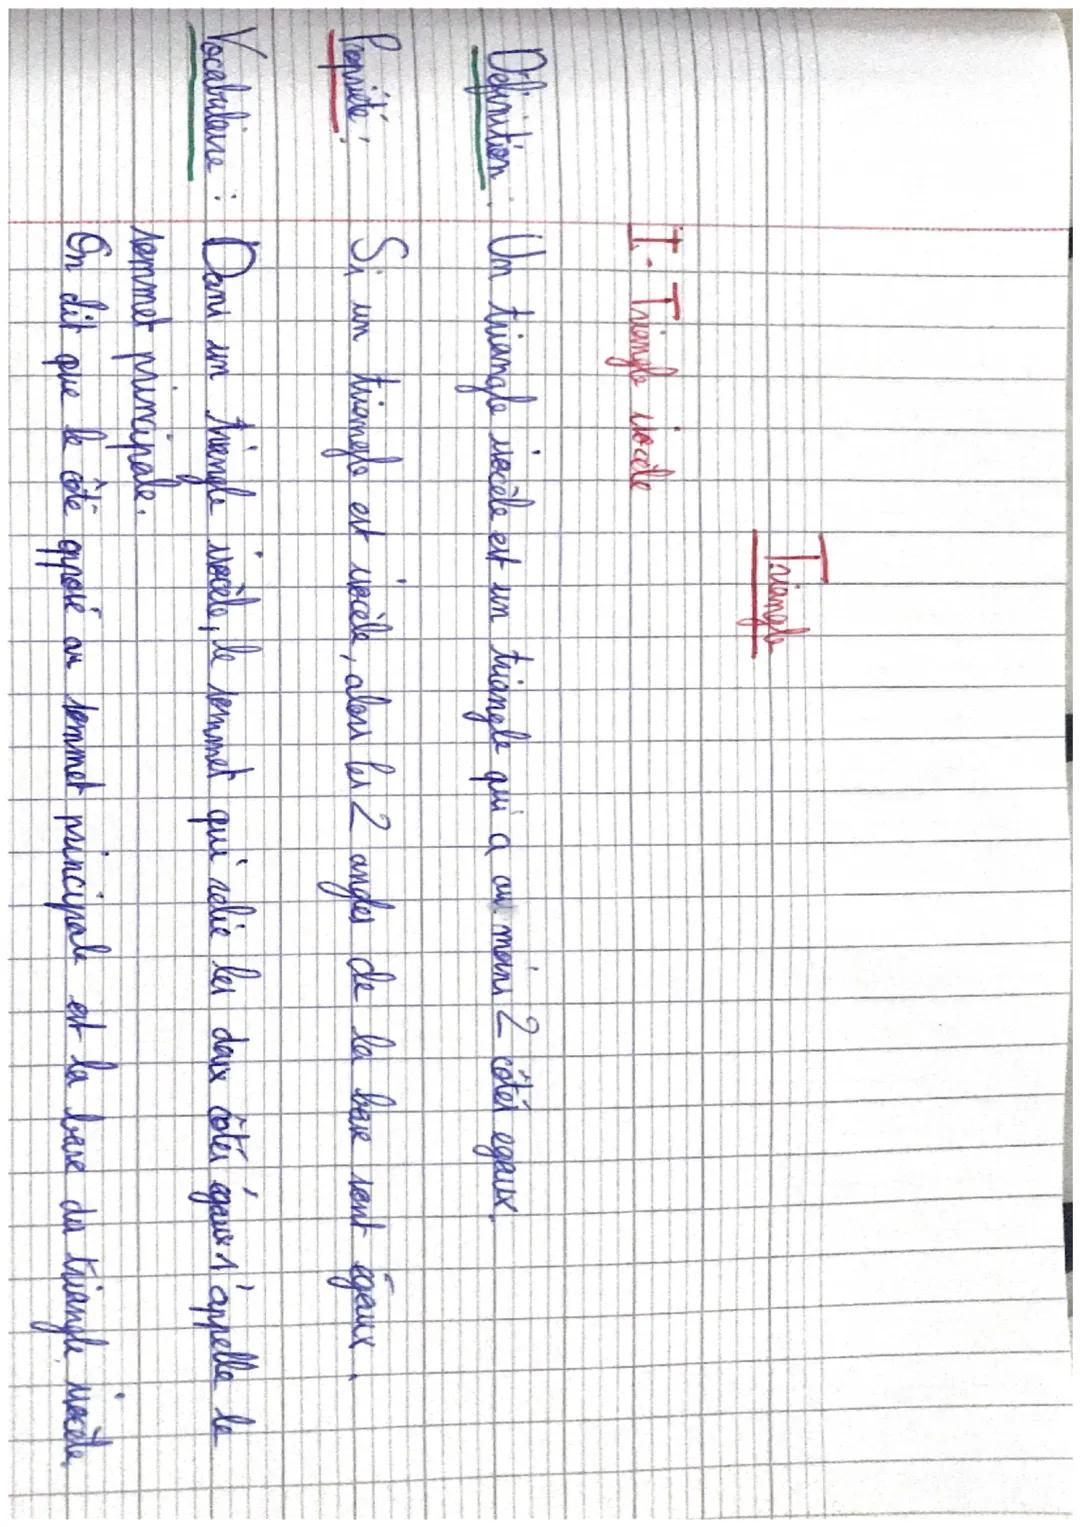 Triangle
I. Triangle isocèle
Définition : Un triangle isocèle est un triangle qui a au moins 2 côtés egaux.
Propriété : Si un triangle est isocèle, alors les 2 angles de la base sont égaux.
Vocabulaire : Dans un triangle isocèle, le sommet qui relie les deux côtés égaux s'appelle le
sommet principale.
On dit que le côté opposé au sommet principale est la base du triangle isocèle.